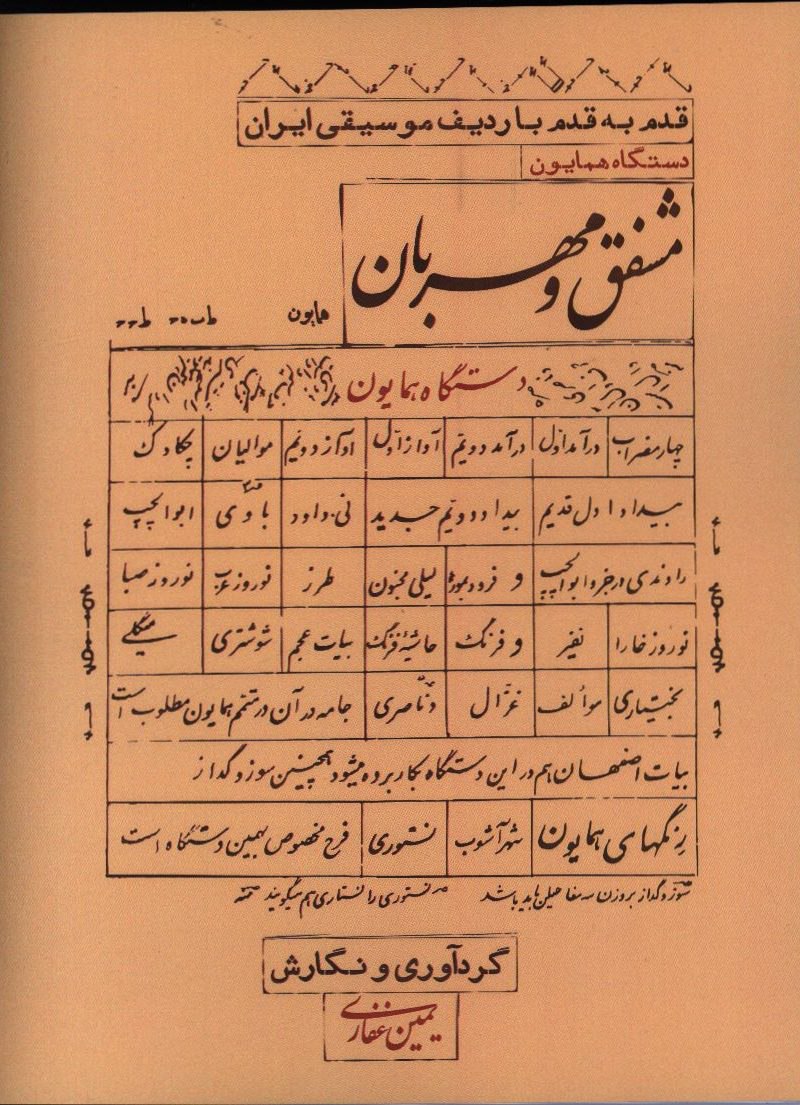 قدم به قدم با ردیف موسیقی ایران
دستگاه همایون
مشفق و مهربان
همایون
دستگاه همایون
چهار مضراب درآمد اول درآمد دویّم آواز اول آواز دویّم موالیان چکاوک
بیداد اول قدیم بیداد دویّم جدید نی داود باوی ابوالچپ
راوندی در جزو ابوالچپ و فرود لیلی مجنون طرز نوروز عرب نوروز صبا
نوروز خارا نفیر و فرنگ حاشیۀ فرنگ بیات عجم شوشتری میگلی
بختیاری موألف غزّال دناصری جامه در آن در متمم همایون مطلوب است
بیات اصفهان هم در این دستگاه بکار برده میشود همچنین سوز و گداز
رنگهای همایون شهرآشوب نستوری فرح مخصوص بهمین دستگاه است
سوز و گداز بر وزن سه مفاعیلن باید باشد نستوری را نستاری هم میگویند
گردآوری و نگارش
یمین غفاری